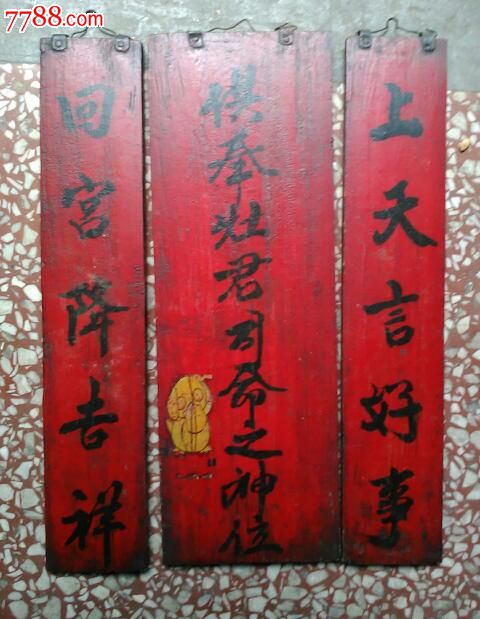 7788.com
上天言好事
供奉灶君司命之神位
回宮降吉祥